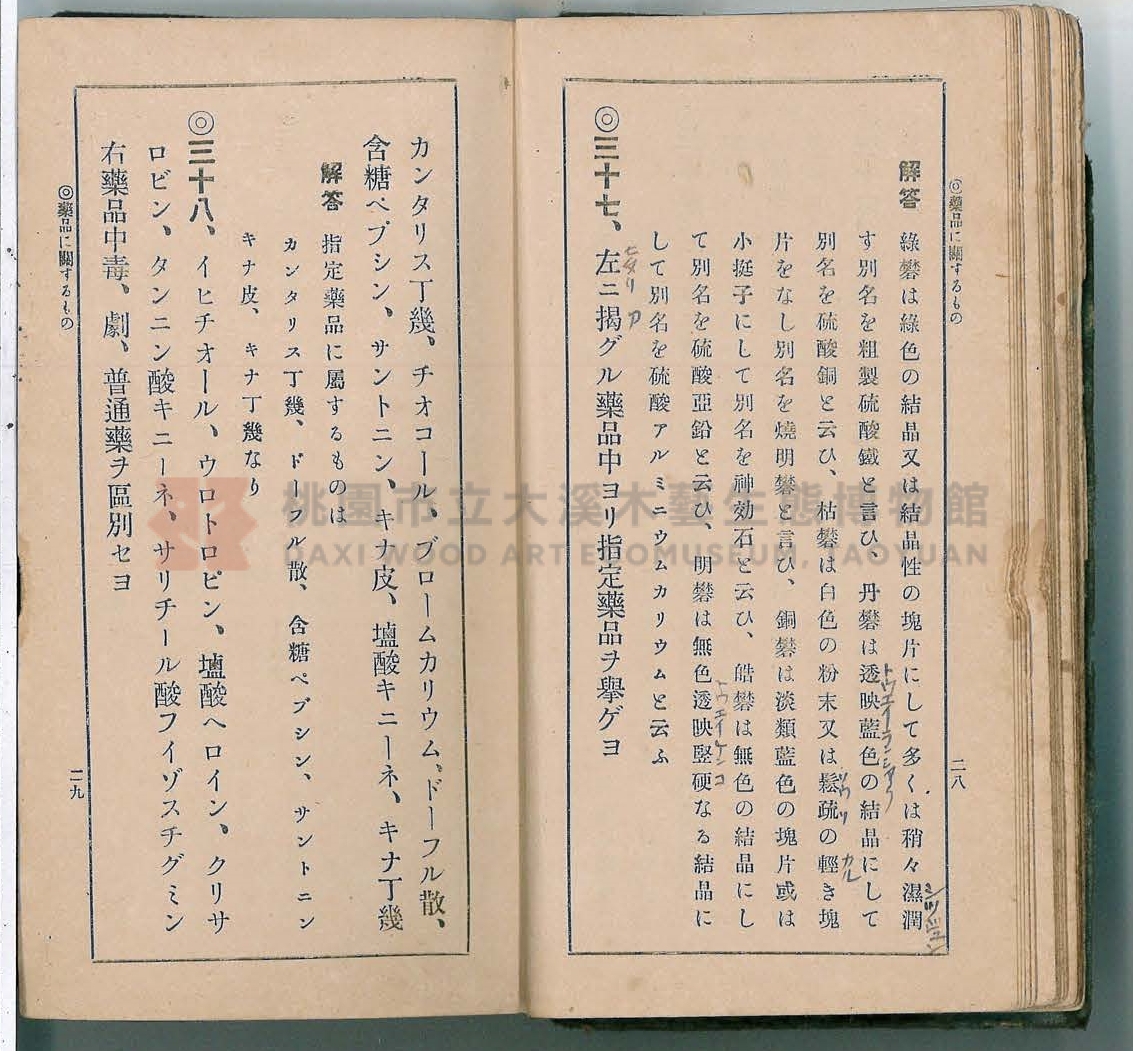 ◎藥品に關するもの
解答 綠礬は綠色の結晶又は結晶性の塊片にして多くは稍々濕潤
す別名を粗製硫酸鐵と言ひ、丹礬は透映藍色の結晶にして
別名を硫酸銅と云ひ、枯礬は白色の粉末又は鬆疏の輕き塊
片をなし別名を燒明礬と言ひ、銅礬は淡類藍色の塊片或は
小挺子にして別名を神効石と云ひ、皓礬は無色の結晶にし
て別名を硫酸亞鉛と云ひ、明礬は無色透映堅硬なる結晶に
して別名を硫酸アルミニウムカリウムと云ふ
◎三十七、左ニ揭グル藥品中ヨリ指定藥品ヲ擧ゲヨ
ヒダリ
ア
カル
二八
カンタリス丁幾、チオコール、ブロームカリウム、ドーフル散、
含糖ペプシン、サントニン、キナ皮、鹽酸キニーネ、キナ丁幾
解答 指定藥品に屬するものは
カンタリス丁幾、ドーフル散、含糖ペプシン、サントニン
キナ皮、キナ丁幾なり
◎三十八、イヒチオール、ウロトロピン、鹽酸ヘロイン、クリサ
ロビン、タンニン酸キニーネ、サリチール酸フイゾスチグミン
右藥品中毒、劇、普通藥ヲ區別セヨ
◎藥品に關するもの
二九
桃園市立大溪木藝生態博物館
DAXI WOOD ART ECOMUSEUM, TAOYUAN